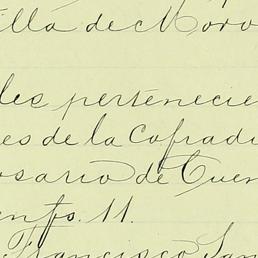 illa de Moro
les pertenecie
es de la Cofradi
osario de Cuen
en fs. 11.
Francisco San